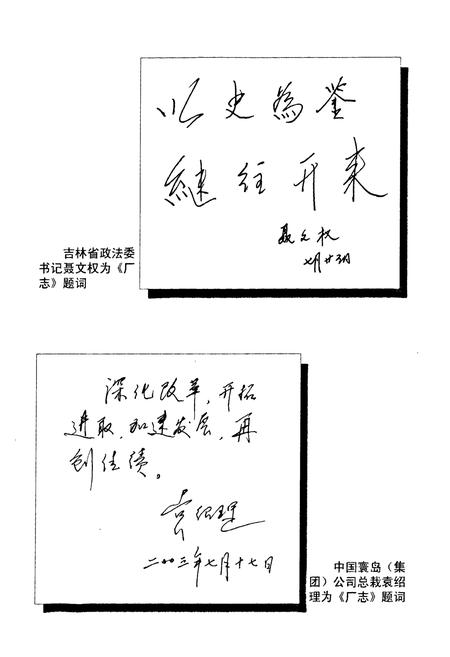 以史為鉴
继往开来
聂文权
七月廿三日
吉林省政法委
书记聂文权为《厂
志》题词
深化改革，开拓
进取，加速发展，再
创佳绩。
袁绍理
二00三年七月十七日
中国寰岛（集
团）公司总裁袁绍
理为《厂志》题词